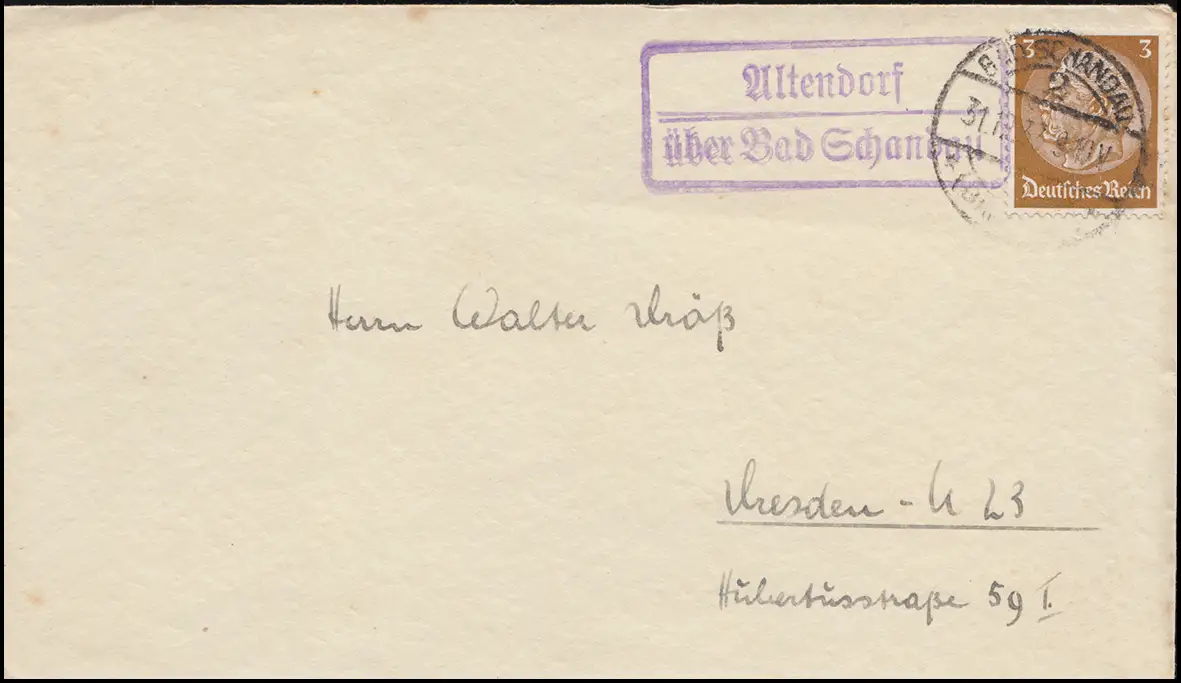 Altendorf
über Bad Schandau
3 3
BAD SCHANDAU
31.1
Deutsches Reich
Herrn Walter
Dresden - N 23
Hubertusstraße 59 I.